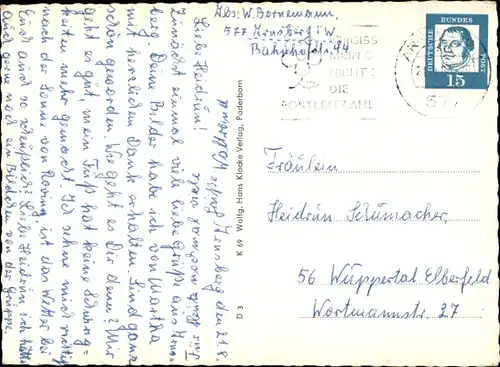 Abs: W. Bornemann.
577 Arnsberg i/W
Bahnhofstr. 44
VERGISS
MEIN
NICHT
DIE
POSTLEITZAHL
DEUTSCHE BUNDESPOST
15
577
Arnsberg den 21.8.
Liebe Heidrun!
Zunächst einmal viele liebe Grüße aus Arns=
berg. Deine Bilder habe ich von Martha
mit herrlichen Dank erhalten. Sind ganz
schön geworden. Wie geht es Dir denn? Mir
geht es gut, mein Fuß hat keine Schwierig=
keiten mehr gemacht. Ich sehne mich richtig
nach der Sonne von ist das Wetter bei
Euch auch so scheußlich? Liebe Heidrun ich hätte
auch gerne noch ein Bildchen von der Gruppe
K 69 Wolfg. Hans Klocke Verlag, Paderborn
D 3
Fräulein
Heidrun Schumacher
56 Wuppertal Elberfeld
Wortmannstr. 27